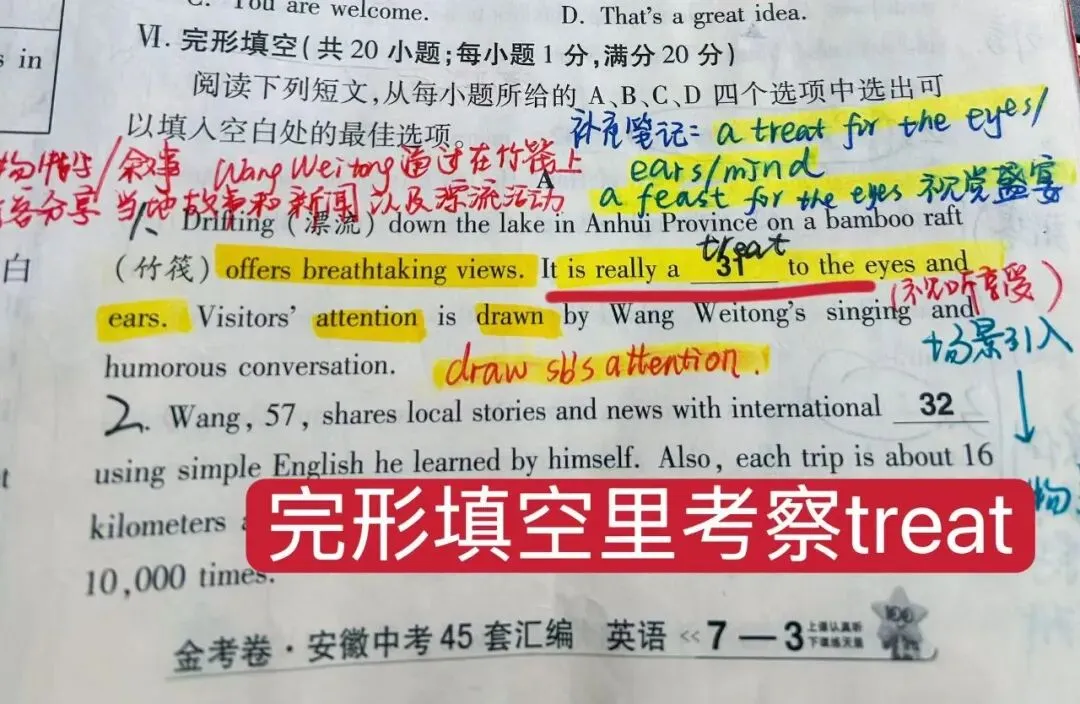 C. You are welcome. D. That's a great idea.
s in
Ⅵ. 完形填空(共 20 小题;每小题 1 分,满分 20 分)
阅读下列短文,从每小题所给的 A、B、C、D 四个选项中选出可
以填入空白处的最佳选项。
补充笔记: a treat for the eyes/
ears/mind
a feast for the eyes 视觉盛宴
/叙事 Wang Weitong 通过在竹筏上
分享 当地故事和新闻以及漂流活动
A
1. Drifting (漂流) down the lake in Anhui Province on a bamboo raft
白
(竹筏) offers breathtaking views. It is really a 31 to the eyes and
treat
ears. Visitors' attention is drawn by Wang Weitong's singing and
(视听享受)
场景引入
humorous conversation. draw sb's attention.
2. Wang, 57, shares local stories and news with international 32
using simple English he learned by himself. Also, each trip is about 16
物
kilometers
完形填空里考察treat
10,000 times.
金考卷·安徽中考 45 套汇编 英语 << 7 — 3 上课认真听
下课练天星